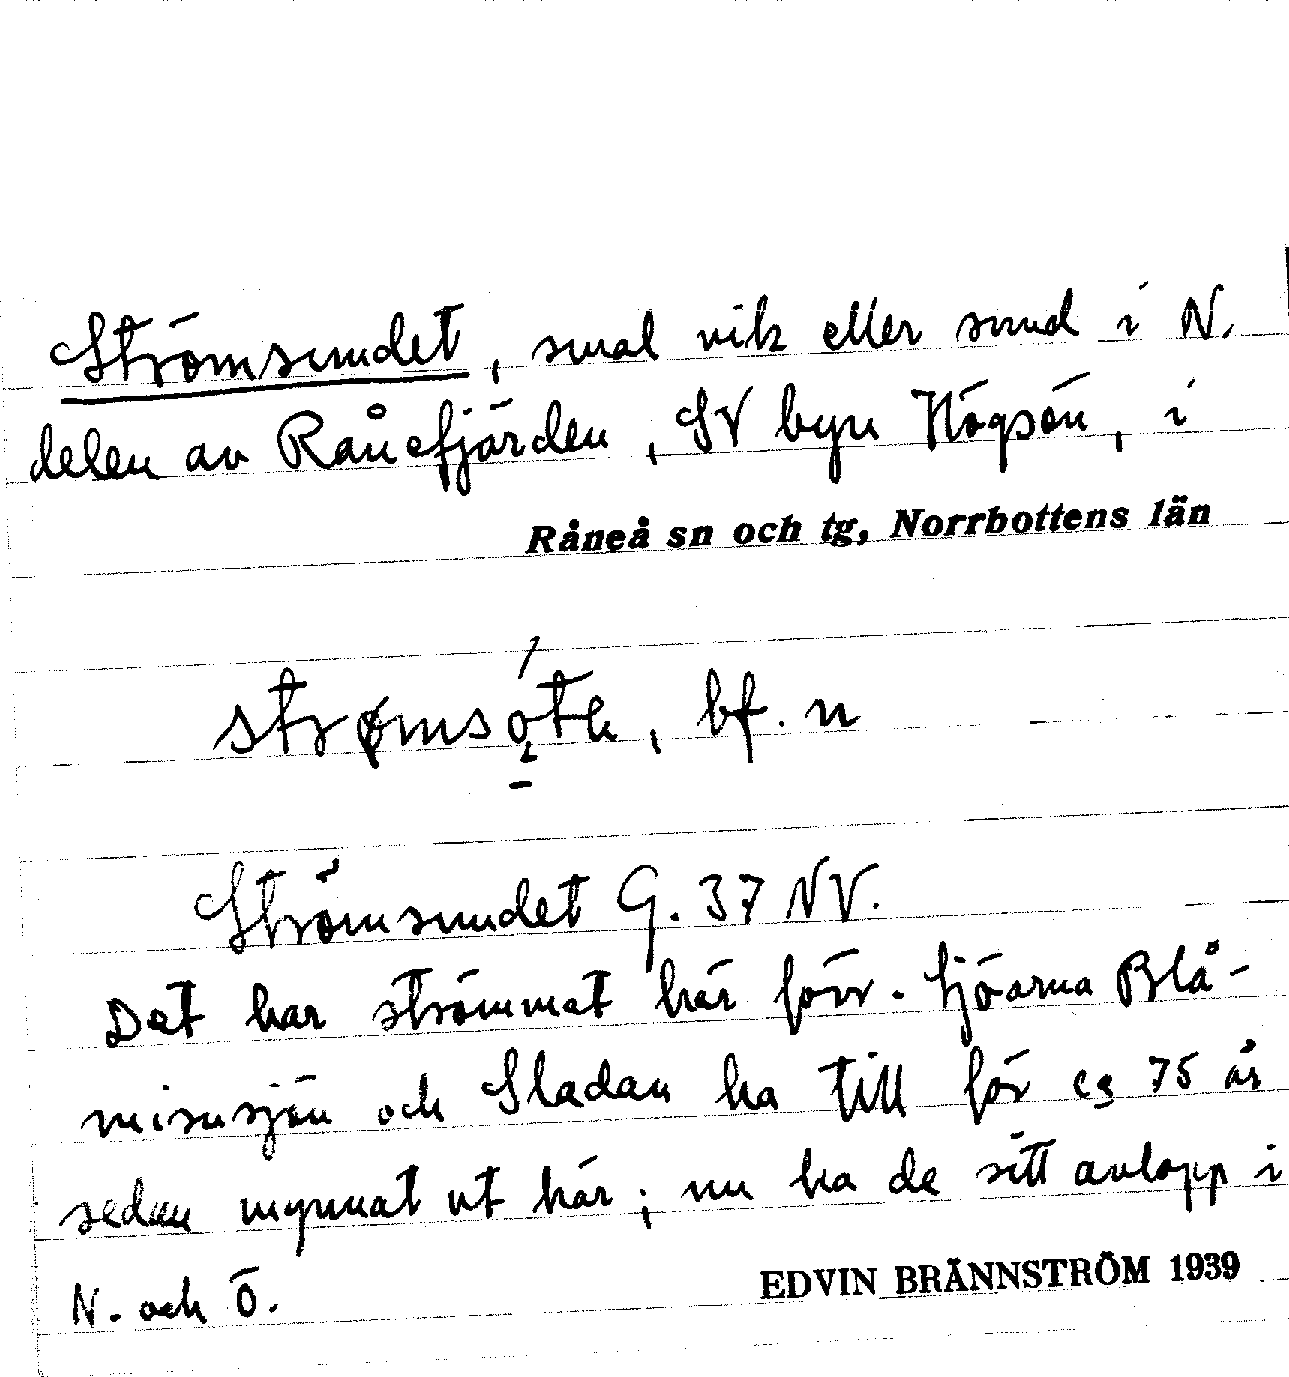 Strömsundet, smal vik eller sund i N.
delen av Rånefjärden, SV byn Högsön, i
Råneå sn och tg, Norrbottens län
bf. n
Strömsundet G. 37 NV.
Det har strömmat här förr. Sjöarna Blå-
misusjön och Sladan ha till för ca 75 år
sedan mynnat ut här; nu ha de sitt avlopp i
N. och Ö.
EDVIN BRÄNNSTRÖM 1939